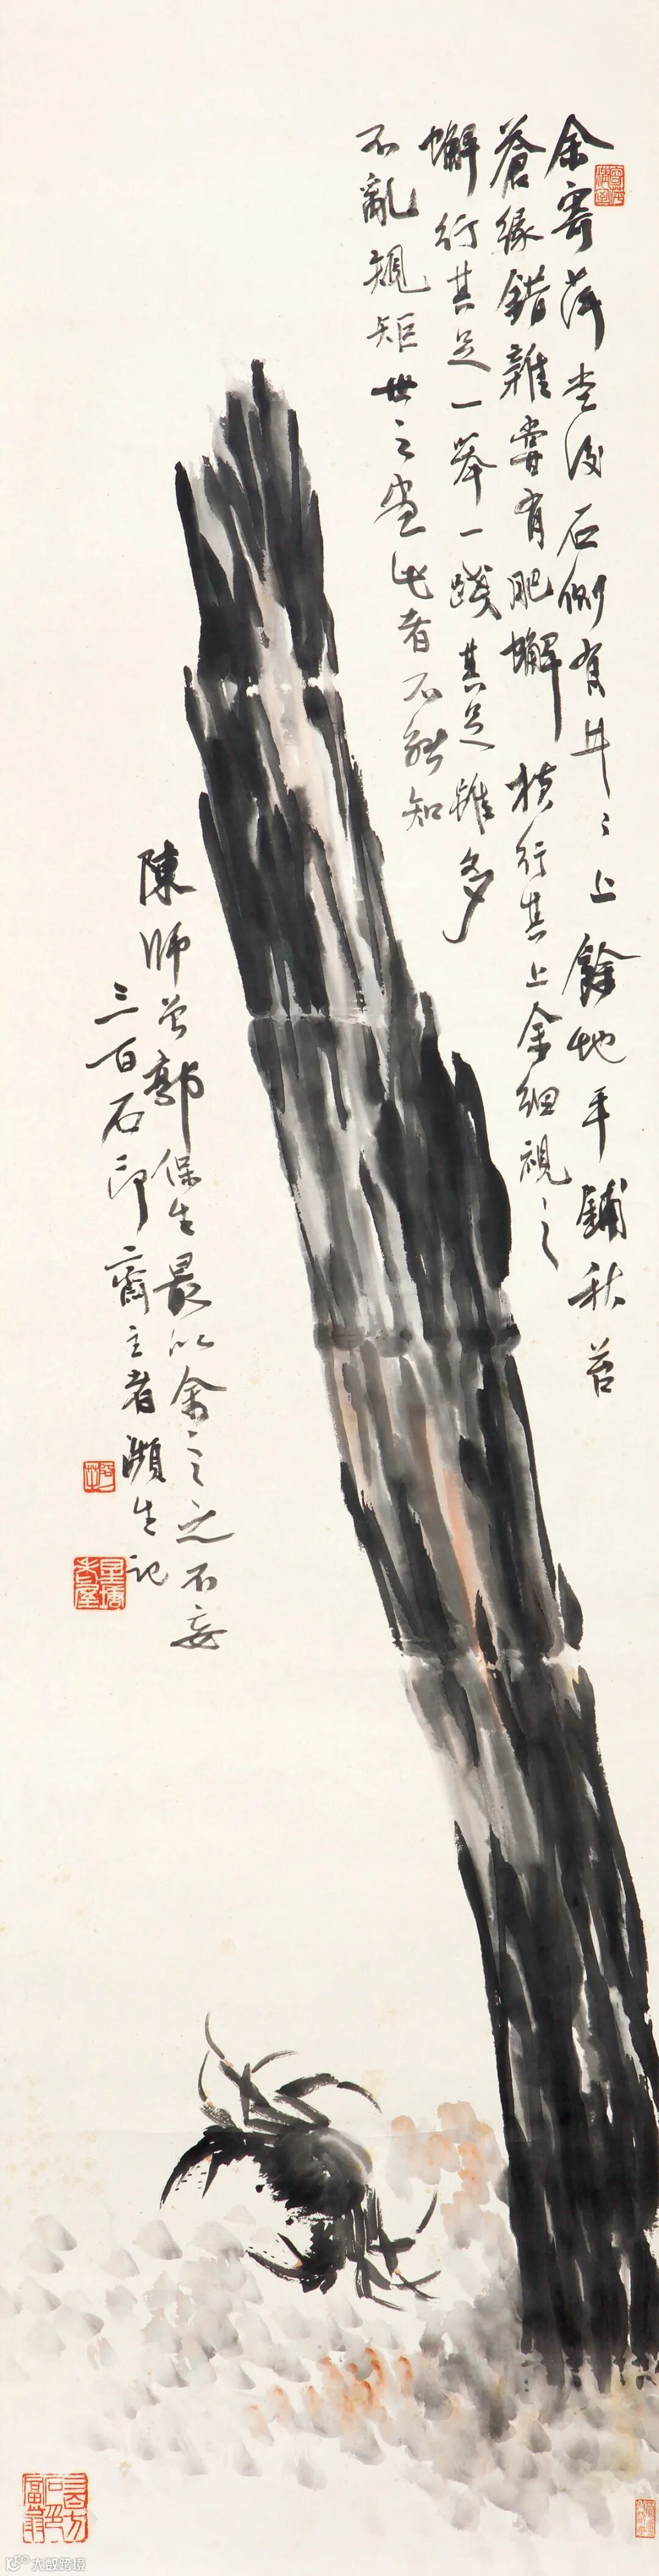 余寄萍堂後石側有井〻上餘地平鋪秋苔
蒼綠錯雜嘗有肥蠏橫行其上余細視之
蠏行其足一舉一踐其足雖多
不亂規矩世之畫此者不能知
陳師曾郭保生最以余言之之不妄
三百石印齋主者瀕生記
大敦跨境